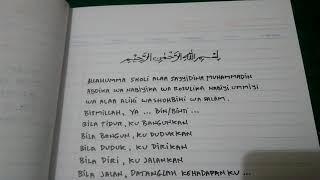 بسم الله الرحمن الرحيم
ALLAHUMMA SHOLI ALAA SAYYIDINA MUHAMMADIN
ABDIKA WA NABIYIKA WA ROSULIKA NABIYI UMMIYI
WA ALAA ALIHI WASHOHBIHI WA SALAM.
BISMILLAH, YA ... BIN/BINTI ...
BILA TIDUR, KU BANGUNKAN
BILA BANGUN, KU DUDUKKAN
BILA DUDUK, KU DIRIKAN
BILA DIRI, KU JALANKAN
BILA JALAN, DATANGLAH KEHADAPAN KU ...